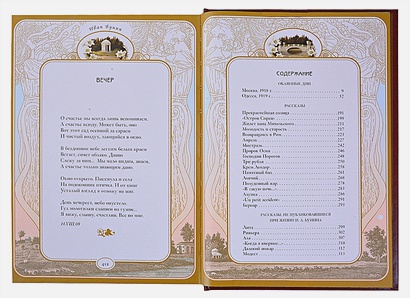 Иван Бунин
ВЕЧЕР
О счастье мы всегда лишь вспоминаем.
А счастье всюду. Может быть, оно
Вот этот сад осенний за сараем
И чистый воздух, льющийся в окно.
В бездонном небе легким белым краем
Встает, сияет облако. Давно
Слежу за ним... Мы мало видим, знаем,
А счастье только знающим дано.
Окно открыто. Пискнула и села
На подоконник птичка. И от книг
Усталый взгляд я отвожу на миг.
День вечереет, небо опустело.
Гул молотилки слышен на гумне...
Я вижу, слышу, счастлив. Все во мне.
14.VIII.09
СОДЕРЖАНИЕ
ОКАЯННЫЕ ДНИ
Москва, 1918 г. 9
Одесса, 1919 г.
РАССКАЗЫ
Прекраснейшая солнца 191
«Остров Сирен»
Молодость и старость 217
Возвращаясь в Рим
Апрель 227
Мистраль
Пророк Осия
Господин Порогов
Три рубля
Крем Леодор
Памятный бал
Ловчий
Полуденный жар
«В такую ночь...»
Алупка
«Un petit accident»
Бернар
РАССКАЗЫ, НЕ ПУБЛИКОВАВШИЕСЯ
ПРИ ЖИЗНИ И. А. БУНИНА
Лита 299
Ривьера 302
Аля 307
«Когда я впервые»
Далекий пожар 312
Модест 313